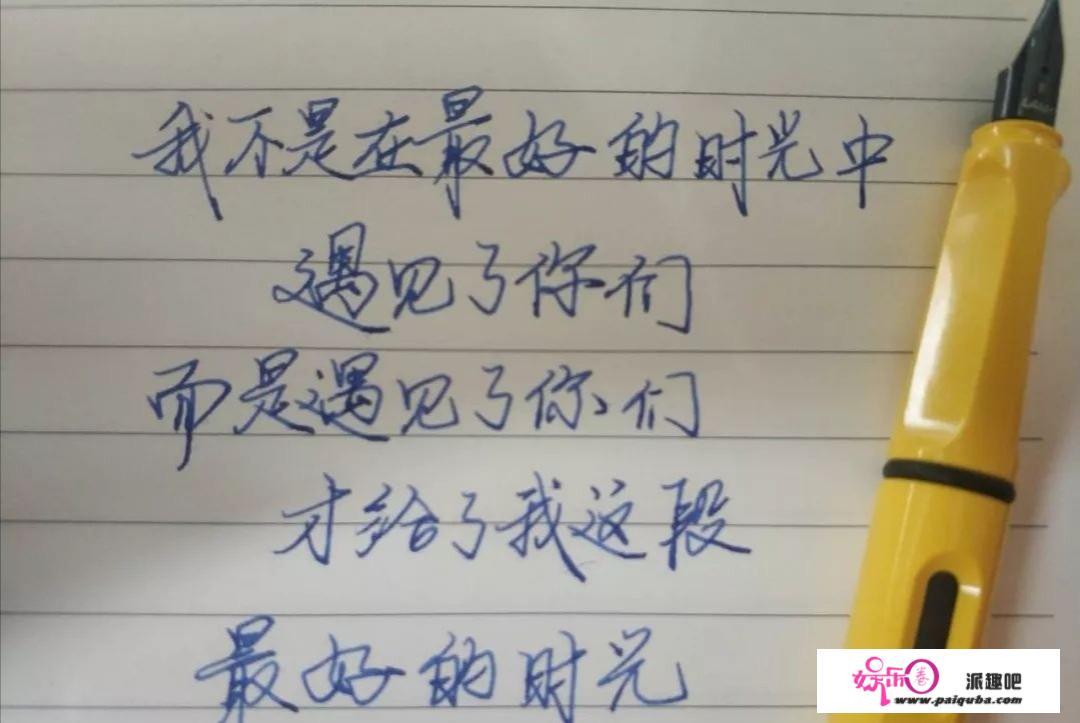 我不是在最好的时光中
遇见了你们
而是遇见了你们
才给了我这段
最好的时光
LAMY
娱乐圈 派趣吧
www.paiquba.com